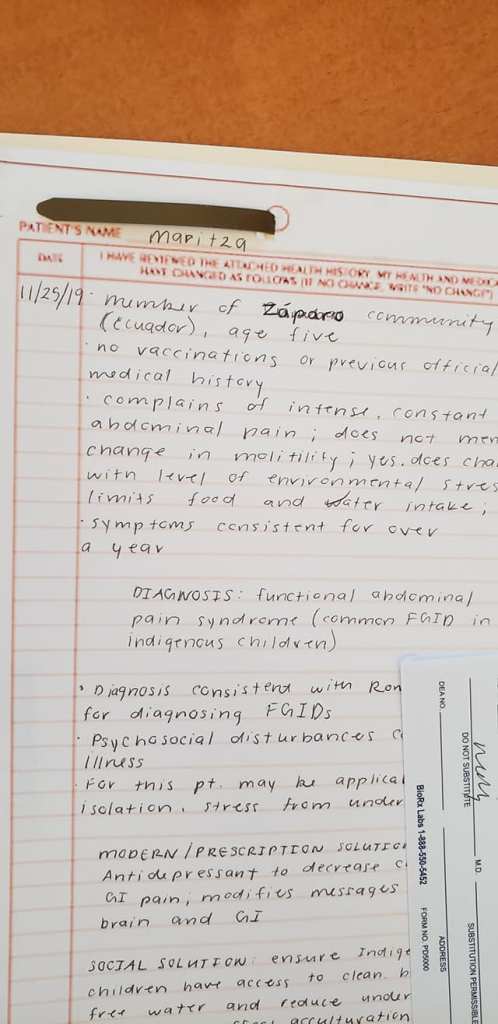 PATIENT'S NAME Maritza
DATE I HAVE REVIEWED THE ATTACHED HEALTH HISTORY. MY HEALTH AND MEDICA
HAVE CHANGED AS FOLLOWS (IF NO CHANGE, WRITE "NO CHANGE")
11/25/19 · member of Záparo community
(Ecuador), age five
· no vaccinations or previous official
medical history
· complains of intense, constant
abdominal pain; does not men
change in molitility; yes. does cha
with level of environmental stres
limits food and water intake;
· symptoms consistent for over
a year
DIAGNOSIS: functional abdominal
pain syndrome (common FGID in
indigenous children)
· Diagnosis consistent with Rom
for diagnosing FGIDs
· Psychosocial disturbances c
illness
· For this pt. may be applica
isolation, stress from under
MODERN/PRESCRIPTION SOLUTIO
Antidepressant to decrease c
GI pain; modifies messages
brain and GI
SOCIAL SOLUTION: ensure Indige
children have access to clean, b
free water and reduce under
acculturation
DEA NO.
DO NOT SUBSTITUTE
M.D.
SUBSTITUTION PERMISSIBLE
BioRx Labs 1-888-550-5452
FORM NO. PD5000
ADDRESS